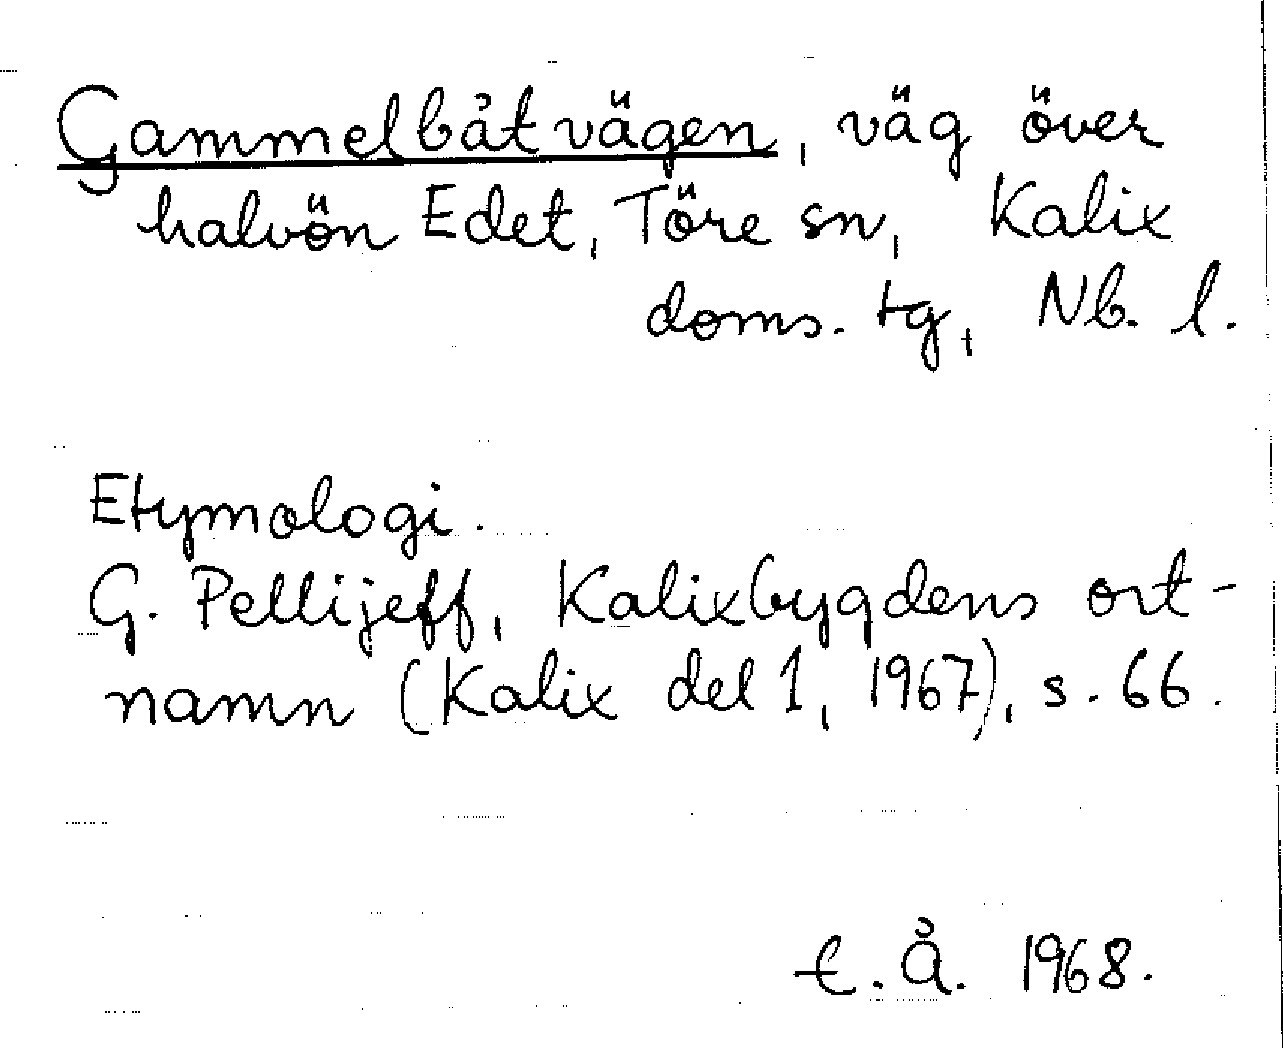 Gammelbåtvägen, väg över
halvön Edet, Töre sn, Kalix
doms. tg, Nb. l.
Etymologi.
G. Pellijeff, Kalixbygdens ort-
namn (Kalix del 1, 1967), s. 66.
E. Å. 1968.